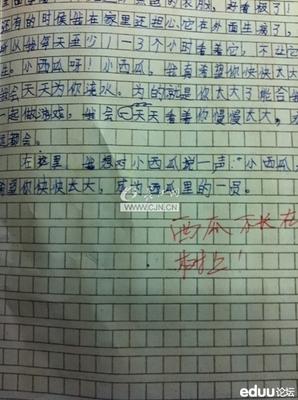 好看极了!
还有的时候我在家里还担心它在外面生病了,
以我每天至少1—3个小时看着它,不让它
小西瓜呀!小西瓜,我真希望你快快大大
我会天天为你浇水。为的就是你太大了能合我
一起做游戏。我会天天看着你慢慢大大。
会。
在这里,我想对小西瓜说一声:小西瓜,
希望你快快大大,成为西瓜里的一员。
西瓜不长在
树上!
WWW.CJN.CN
eduu论坛